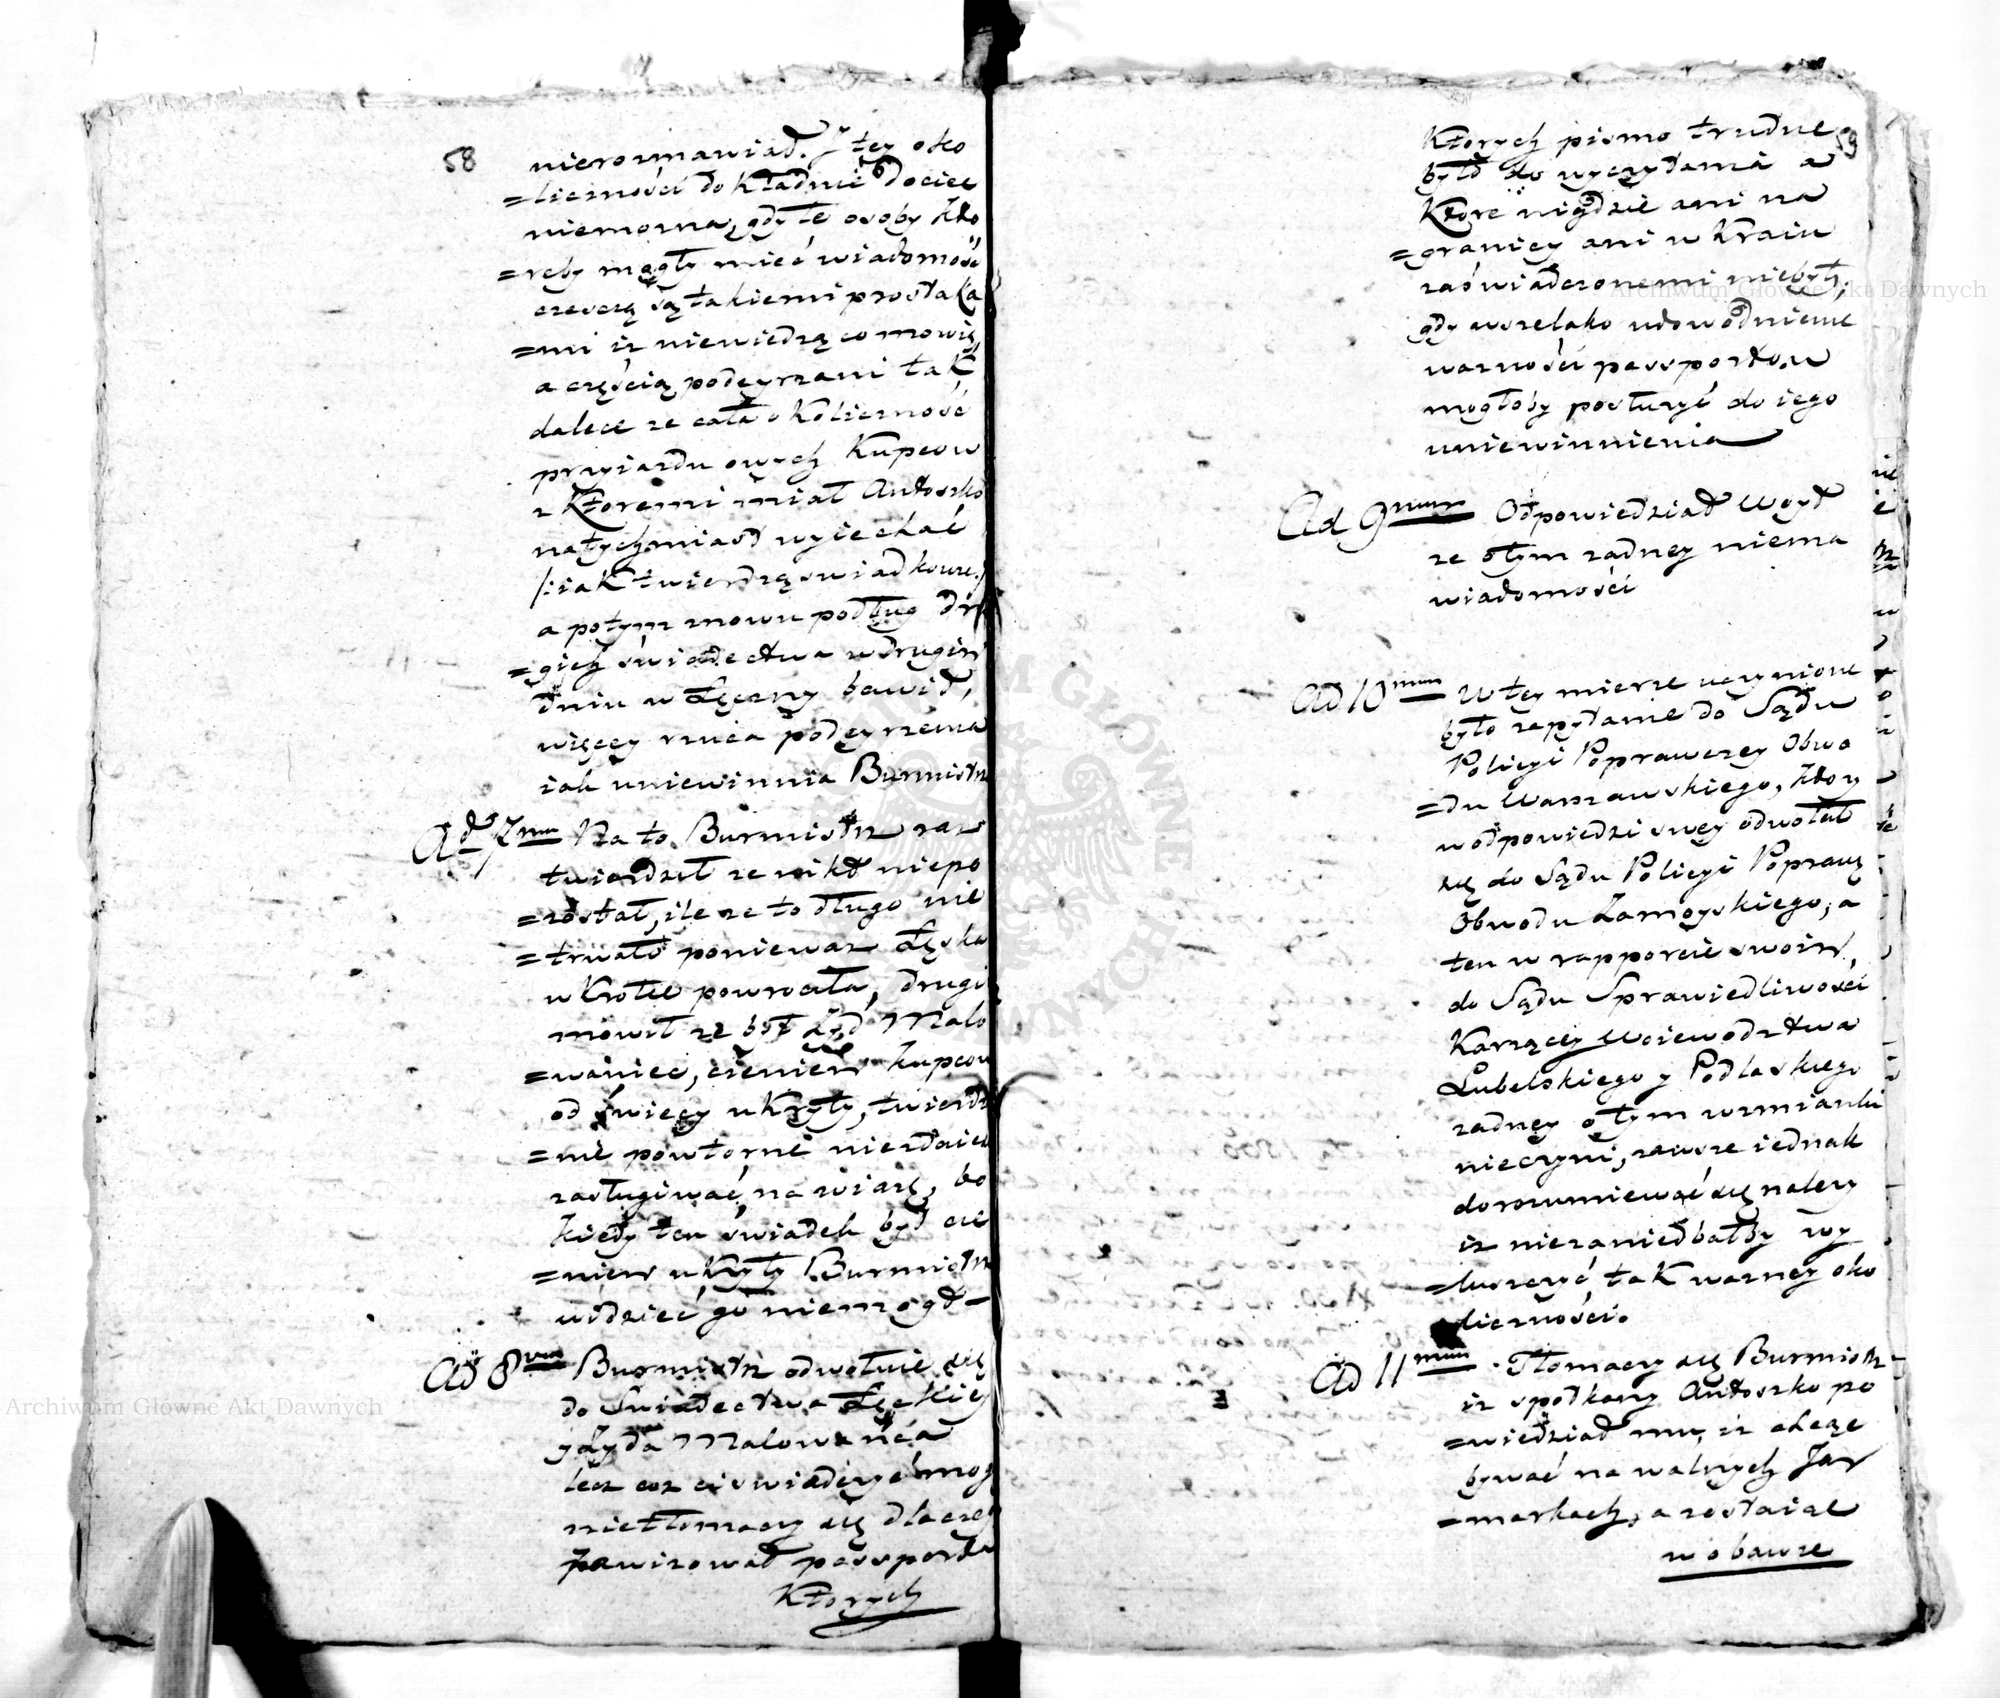 58
nierozmawiał. Z tey oko
=liczności dokładnie dociec
niemożna, gdy te osoby któ
=reby mogły mieć wiadomość
częścią są takiemi prostaka
=mi iż niewiedzą co mowią,
a częścią podeyrzani tak
dalece że cała okoliczność
przyiazdu owych Kupcow
z Ktoremi miał Antoszko
natychmiast wyiechać
/:iak twierdzą swiadkowie:/
a potym znowu podług dru
=gich świadectwa w drugim
dniu w Łęczny bawił,
więcey rzuca podeyrzenia
iak uniewinnia Burmistrz
Ad 7mum Na to Burmistrz zas
twierdził ze nikt niepo
=został, ile ze to długo nie
=trwało poniewaz Łęska
w Krotce powrociła, drugi
mowił ze był Żyd Malo
=waniec, cieniem Kupcow
od świecy ukryty, twierdze
=nie powtorne niezdaie
zasługiwać na wiarę, bo
kiedy ten świadek był cie
=niem ukryty Burmistrz
widzieć go niemogł –
Ad 8vum Burmistrz odwołuie się
do Świadectwa Łęckiey
y Żyda Malowańca
lecz coż ci swiadczyć mog
nietłomaczy się dlaczego
zawizował passporta
Ktorych
59
Ktorych pismo trudne
było do wyczytania a
Ktore nigdzie ani na
=granicy ani w Kraiu
zaświadczonemi niebyły,
gdy wszelako udowodnienie
ważności passportow
mogłoby posłużyć do iego
uniewinnienia
Ad 9num Odpowiedział Woyt
ze o tym zadney niema
wiadomości
Ad 10mum W tey mierze uczynione
było zapytanie do Sądu
Policyi Poprawczey Obwo
=du Warszawskiego, ktory
w odpowiedzi swey odwołał
się do Sądu Policyi Poprawy
Obwodu Zamoyskiego, a
ten w rapporcie swoim,
do Sądu Sprawiedliwości
Karzącey Woiewodztwa
Lubelskiego y Podlaskiego
zadney o tym wzmianki
nieczyni, zawsze iednak
dorozumiewać się nalezy
iz niezaniedbałby wy
=łuszczyć tak wazney oko
liczności.
Ad 11mum Tłomaczy się Burmistrz
iz spotkany Antoszko po
=wiedział mu, iz chcąc
bywać na walnych Jar
=markach, a zostaiąc
w obawie
Archiwum Główne Akt Dawnych
Archiwum Główne Akt Dawnych